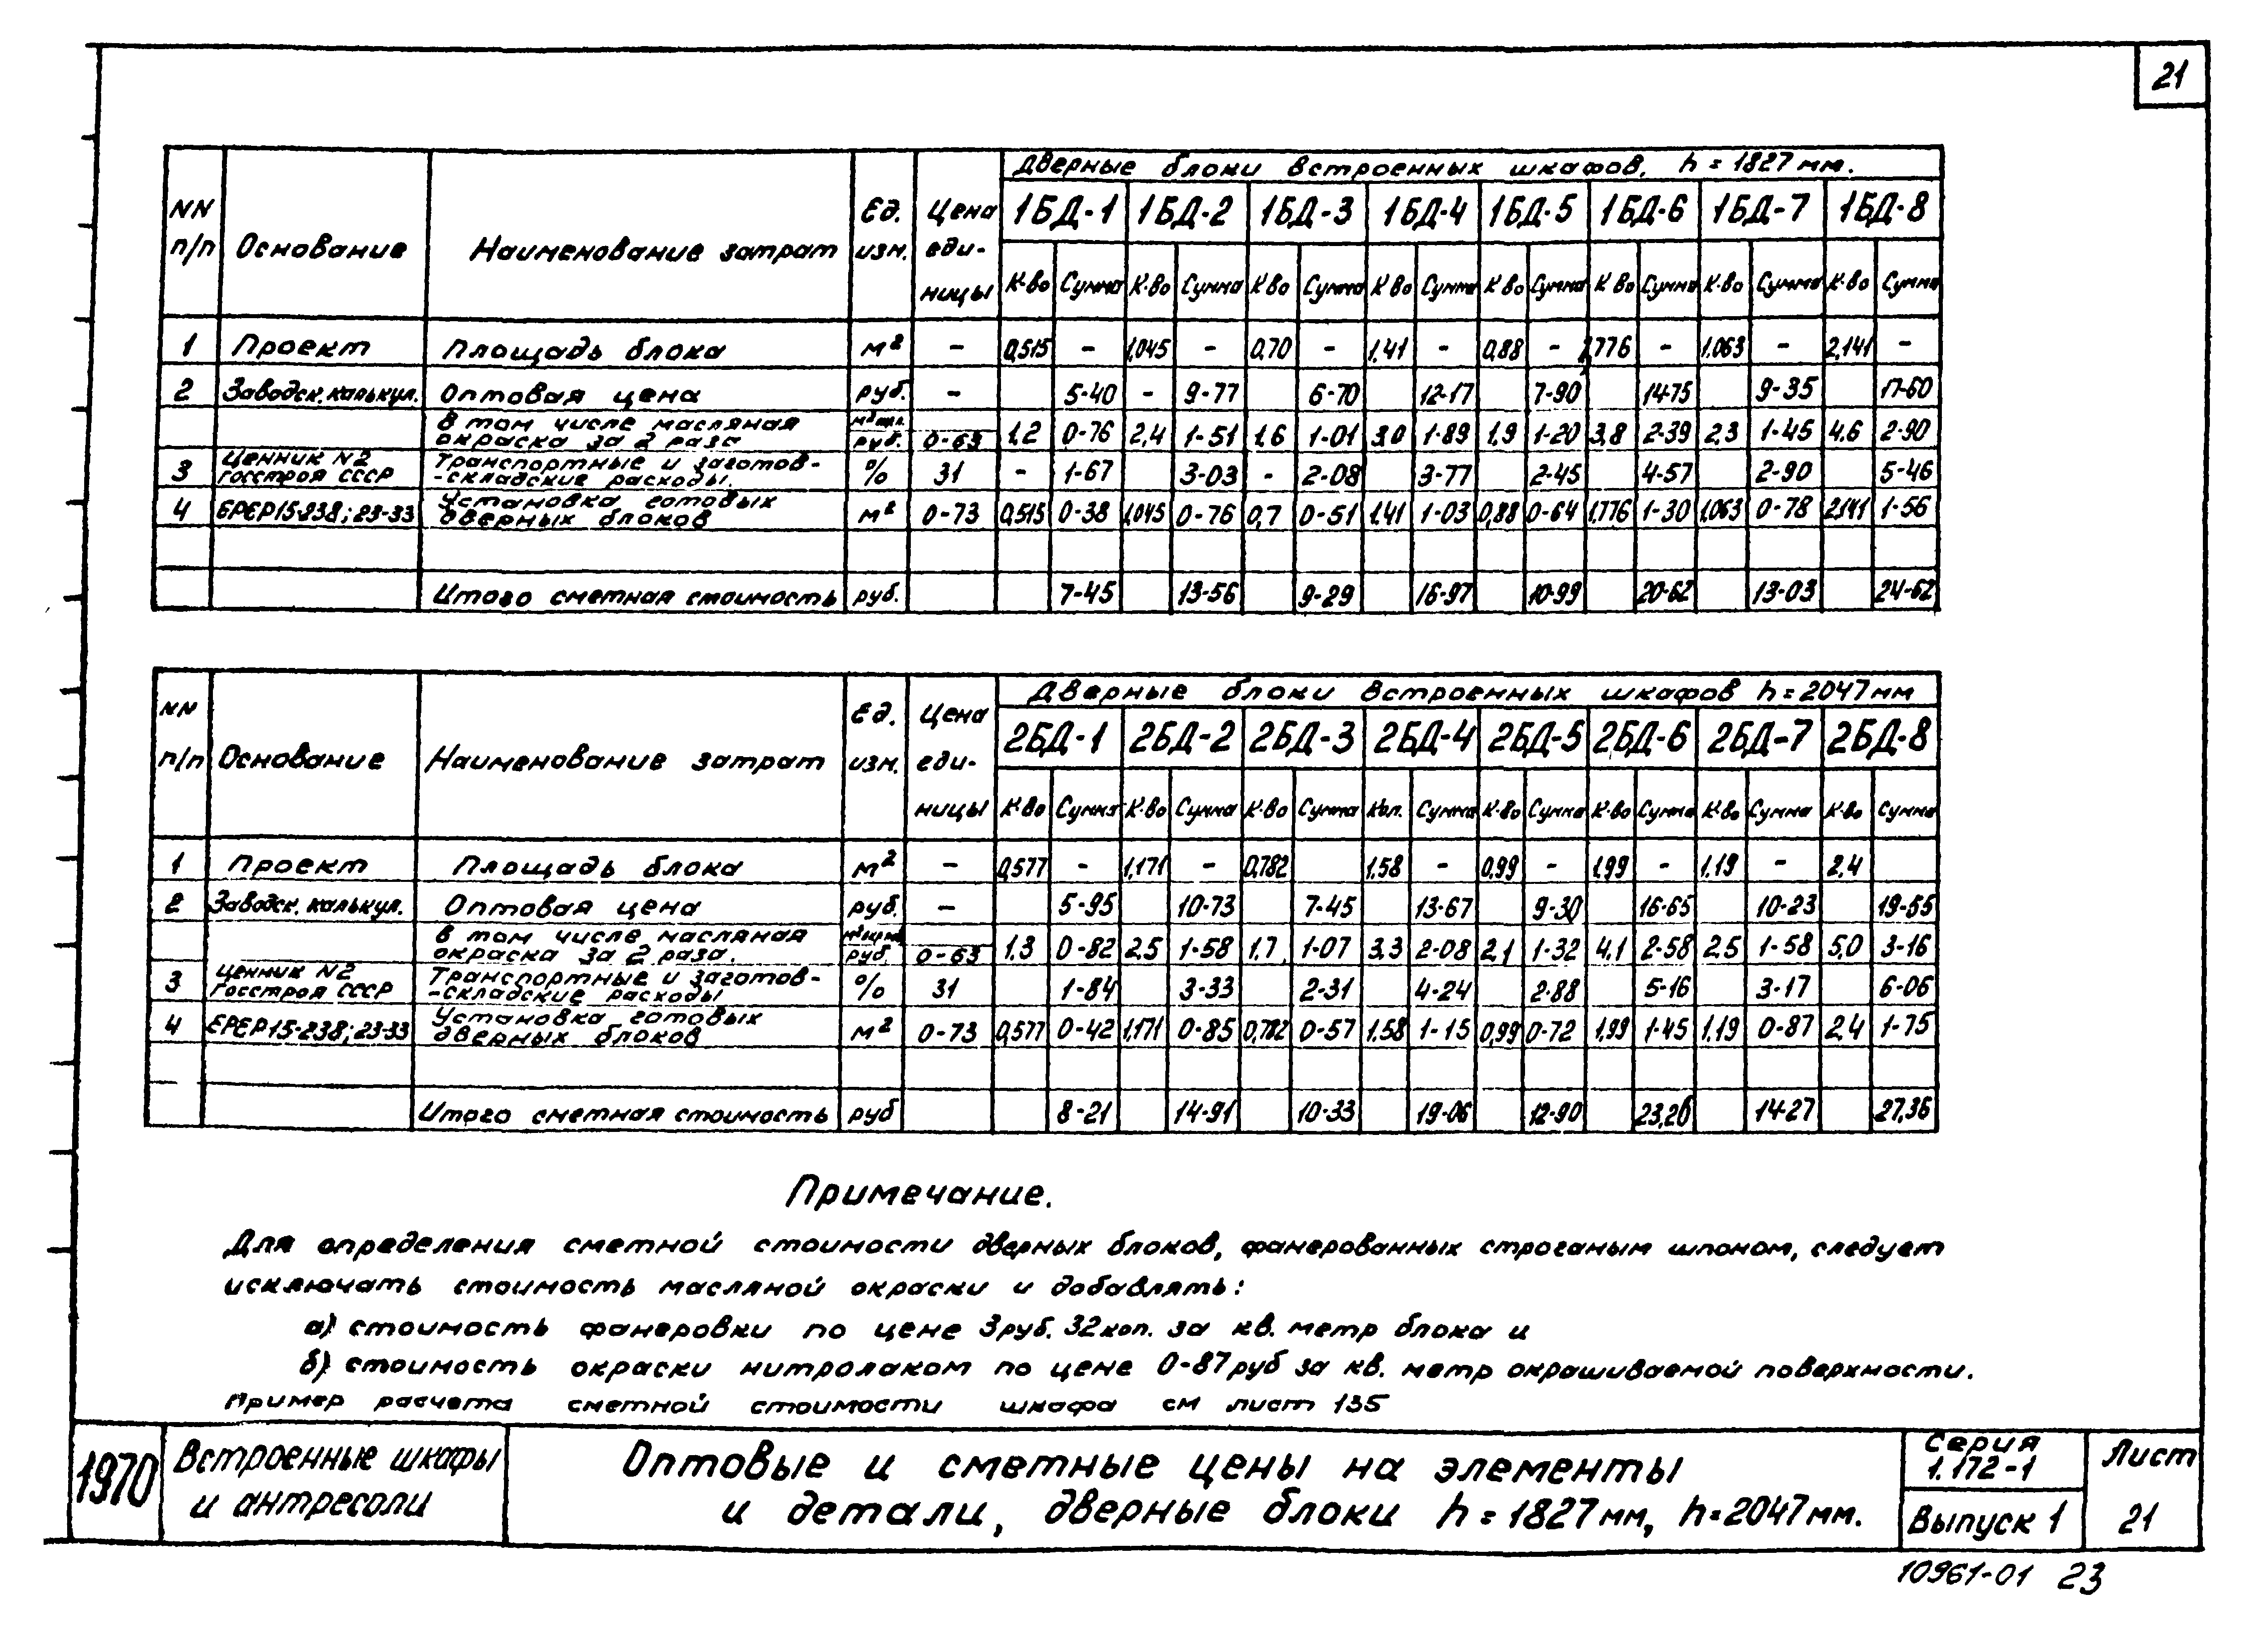 21
Дверные блоки встроенных шкафов, h = 1827 мм.
NN п/п Основание Наименование затрат Ед. изм. Цена еди- ницы 1БД-1 1БД-2 1БД-3 1БД-4 1БД-5 1БД-6 1БД-7 1БД-8
К-во Сумма К-во Сумма К-во Сумма К-во Сумма К-во Сумма К-во Сумма К-во Сумма К-во Сумма
1 Проект Площадь блока м² - 0,515 - 1,045 - 0,70 - 1,41 - 0,88 - 1,776 - 1,063 - 2,141 -
2 Заводск. калькул. Оптовая цена руб. - 5-40 - 9-77 6-70 12-17 7-90 14-75 9-35 17-60
в том числе масляная
окраска за 2 раза руб. 0-63 1,2 0-76 2,4 1-51 1,6 1-01 3,0 1-89 1,9 1-20 3,8 2-39 2,3 1-45 4,6 2-90
3 Ценник N2 Госстроя СССР Транспортные и заготов-
-складские расходы. % 31 - 1-67 3-03 - 2-08 3-77 2-45 4-57 2-90 5-46
4 ЕРЕР15-238; 23-33 Установка готовых
дверных блоков м² 0-73 0,515 0-38 1,045 0-76 0,7 0-51 1,41 1-03 0,88 0-64 1,776 1-30 1,063 0-78 2,141 1-56
Итого сметная стоимость руб. 7-45 13-56 9-29 16-97 10-99 20-62 13-03 24-62
Дверные блоки встроенных шкафов h = 2047 мм
NN п/п Основание Наименование затрат Ед. изм. Цена еди- ницы 2БД-1 2БД-2 2БД-3 2БД-4 2БД-5 2БД-6 2БД-7 2БД-8
К-во Сумма К-во Сумма К-во Сумма Кол. Сумма К-во Сумма К-во Сумма К-во Сумма К-во Сумма
1 Проект Площадь блока м² - 0,577 - 1,171 - 0,782 1,58 - 0,99 - 1,99 - 1,19 - 2,4
2 Заводск. калькул. Оптовая цена руб. - 5-95 10-73 7-45 13-67 9-30 16-65 10-23 19-55
в том числе масляная
окраска за 2 раза. руб. 0-63 1,3 0-82 2,5 1-58 1,7 1-07 3,3 2-08 2,1 1-32 4,1 2-58 2,5 1-58 5,0 3-16
3 Ценник N2 Госстроя СССР Транспортные и заготов-
-складские расходы % 31 1-84 3-33 2-31 4-24 2-88 5-16 3-17 6-06
4 ЕРЕР15-238; 23-33 Установка готовых
дверных блоков м² 0-73 0,577 0-42 1,171 0-85 0,782 0-57 1,58 1-15 0,99 0-72 1,99 1-45 1,19 0-87 2,4 1-75
Итого сметная стоимость руб 8-21 14-91 10-33 19-06 12-90 23,26 14-27 27,36
Примечание.
Для определения сметной стоимости дверных блоков, фанерованных строганым шпоном, следует
исключать стоимость масляной окраски и добавлять:
а) стоимость фанеровки по цене 3руб. 32коп. за кв. метр блока и
б) стоимость окраски нитролаком по цене 0-87руб за кв. метр окрашиваемой поверхности.
Пример расчета сметной стоимости шкафа см лист 135
1970
Встроенные шкафы
и антресоли
Оптовые и сметные цены на элементы
и детали, дверные блоки h = 1827мм, h = 2047мм.
Серия
1.172-1
Выпуск 1
Лист
21
10961-01 23